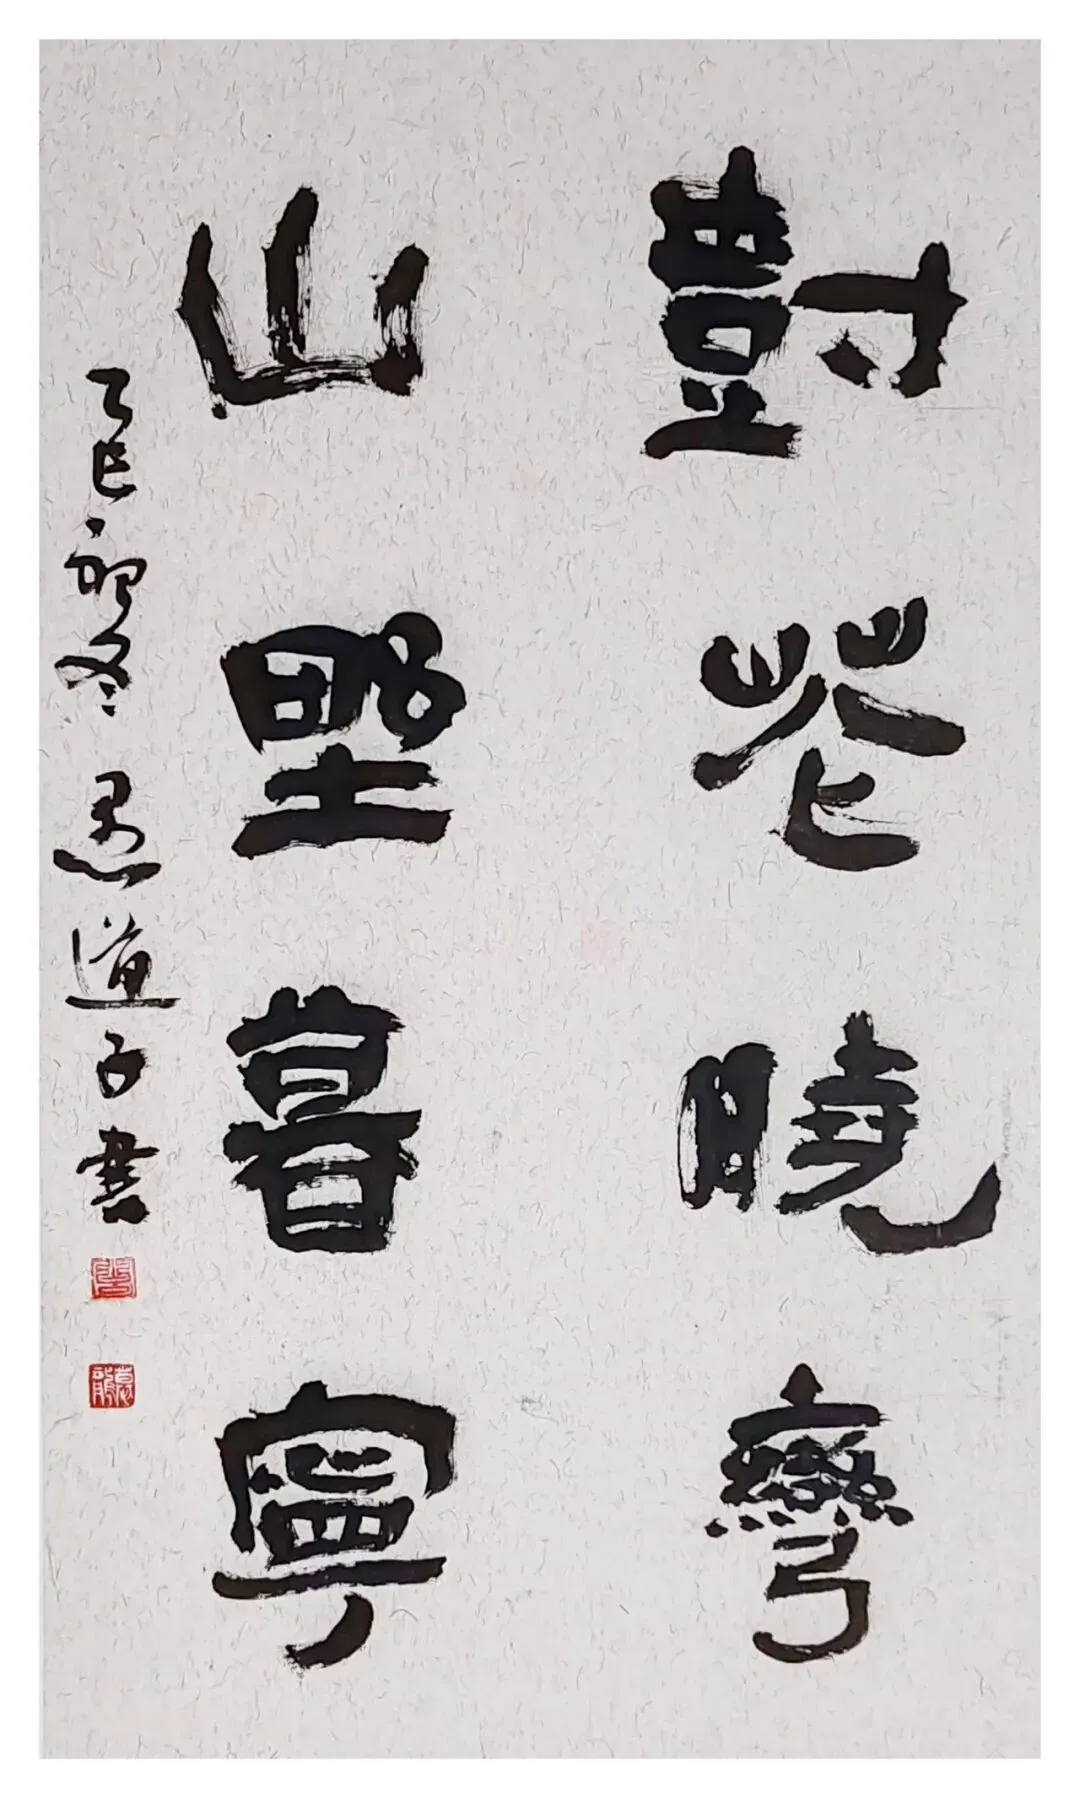 尌花曉彎
山野暮寧
乙巳初冬 愚道子書